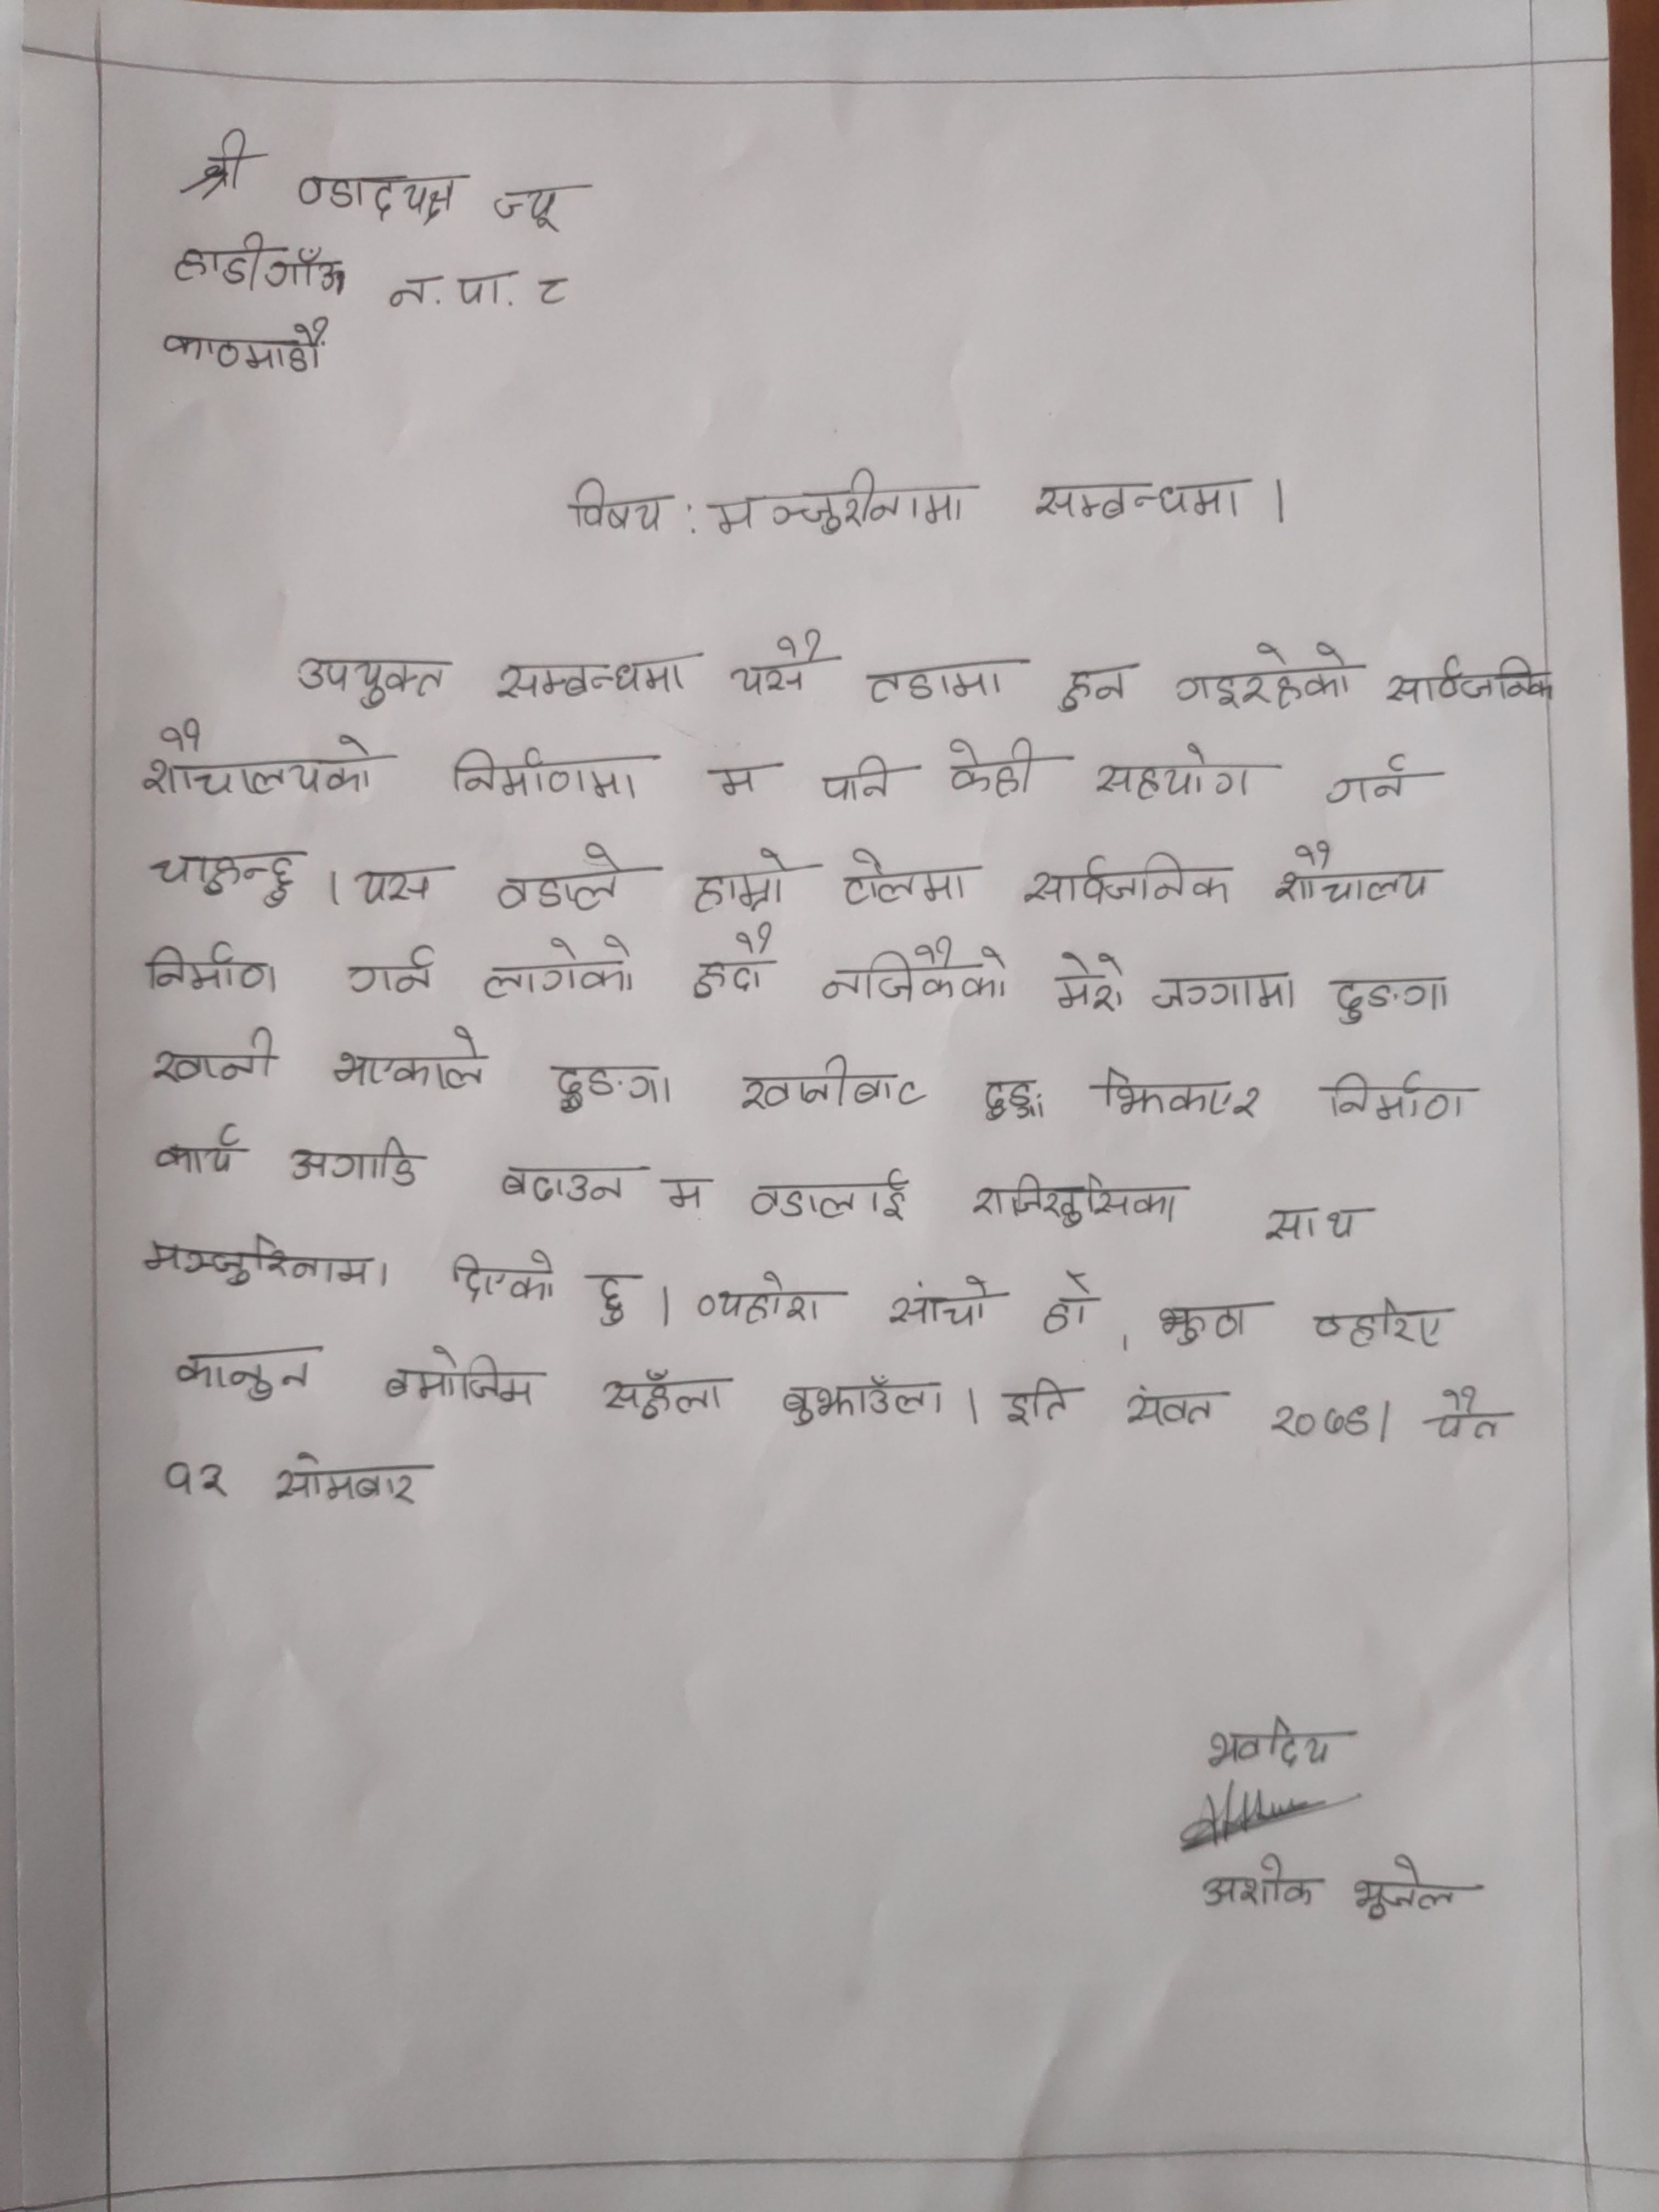 श्री वडाद्यक्ष ज्यू
हाडीगाँऊ न.पा. ८
काठमाडौं
विषय : मञ्जुरीनामा सम्बन्धमा ।
उपयुक्त सम्बन्धमा यसै वडामा हुन गइरहेको सार्वजनिक
शौचालयको निर्माणमा म पनि केही सहयोग गर्न
चाहुन्छु । यस वडाले हाम्रो टोलमा सार्वजनिक शौचालय
निर्माण गर्न लागेको हुदाै नजिकैको मेरो जग्गामा ढुङगा
खानी भएकाले ढुङगा खानीबाट ढुङ्गा झिकाएर निर्माण
कार्य अगाडि बढाउन म वडालाई राजिखुसिका साथ
मञ्जुरिनामा दिएको छु । व्यहोरा सांचो हो , झुठा ठहरिए
कानुन बमोजिम सहुँला बुझाउँला । इति संवत २०७८। चैत
१२ सोमबार
भवदिय
अशोक भूजेल